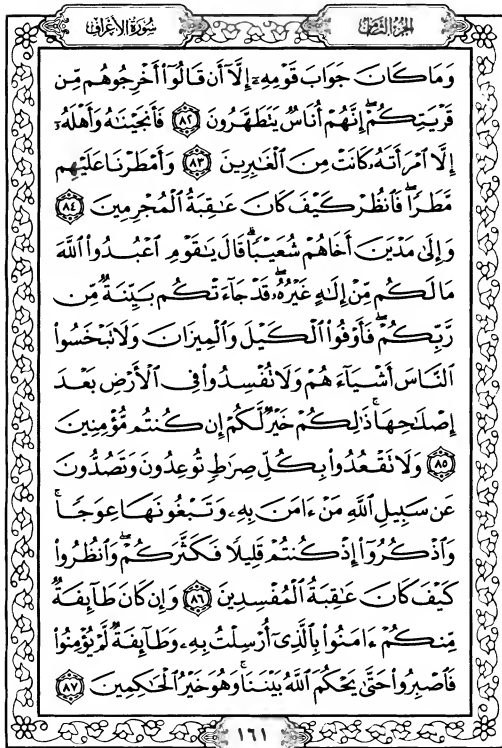 سُورَةُ الأَعْرَافِ الجُزْءُ الثَّامِنُ
وَمَا كَانَ جَوَابَ قَوْمِهِۦٓ إِلَّآ أَن قَالُوٓا۟ أَخْرِجُوهُم مِّن
قَرْيَتِكُمْ ۖ إِنَّهُمْ أُنَاسٌ يَتَطَهَّرُونَ ٨٢ فَأَنجَيْنَٰهُ وَأَهْلَهُۥٓ
إِلَّا ٱمْرَأَتَهُۥ كَانَتْ مِنَ ٱلْغَٰبِرِينَ ٨٣ وَأَمْطَرْنَا عَلَيْهِم
مَّطَرًا ۖ فَٱنظُرْ كَيْفَ كَانَ عَٰقِبَةُ ٱلْمُجْرِمِينَ ٨٤
وَإِلَىٰ مَدْيَنَ أَخَاهُمْ شُعَيْبًا ۗ قَالَ يَٰقَوْمِ ٱعْبُدُوا۟ ٱللَّهَ
مَا لَكُم مِّنْ إِلَٰهٍ غَيْرُهُۥ ۖ قَدْ جَآءَتْكُم بَيِّنَةٌ مِّن
رَّبِّكُمْ ۖ فَأَوْفُوا۟ ٱلْكَيْلَ وَٱلْمِيزَانَ وَلَا تَبْخَسُوا۟
ٱلنَّاسَ أَشْيَآءَهُمْ وَلَا تُفْسِدُوا۟ فِى ٱلْأَرْضِ بَعْدَ
إِصْلَٰحِهَا ۚ ذَٰلِكُمْ خَيْرٌ لَّكُمْ إِن كُنتُم مُّؤْمِنِينَ
٨٥ وَلَا تَقْعُدُوا۟ بِكُلِّ صِرَٰطٍ تُوعِدُونَ وَتَصُدُّونَ
عَن سَبِيلِ ٱللَّهِ مَنْ ءَامَنَ بِهِۦ وَتَبْغُونَهَا عِوَجًا ۚ
وَٱذْكُرُوٓا۟ إِذْ كُنتُمْ قَلِيلًا فَكَثَّرَكُمْ ۖ وَٱنظُرُوا۟
كَيْفَ كَانَ عَٰقِبَةُ ٱلْمُفْسِدِينَ ٨٦ وَإِن كَانَ طَآئِفَةٌ
مِّنكُمْ ءَامَنُوا۟ بِٱلَّذِىٓ أُرْسِلْتُ بِهِۦ وَطَآئِفَةٌ لَّمْ يُؤْمِنُوا۟
فَٱصْبِرُوا۟ حَتَّىٰ يَحْكُمَ ٱللَّهُ بَيْنَنَا ۚ وَهُوَ خَيْرُ ٱلْحَٰكِمِينَ ٨٧
١٦١